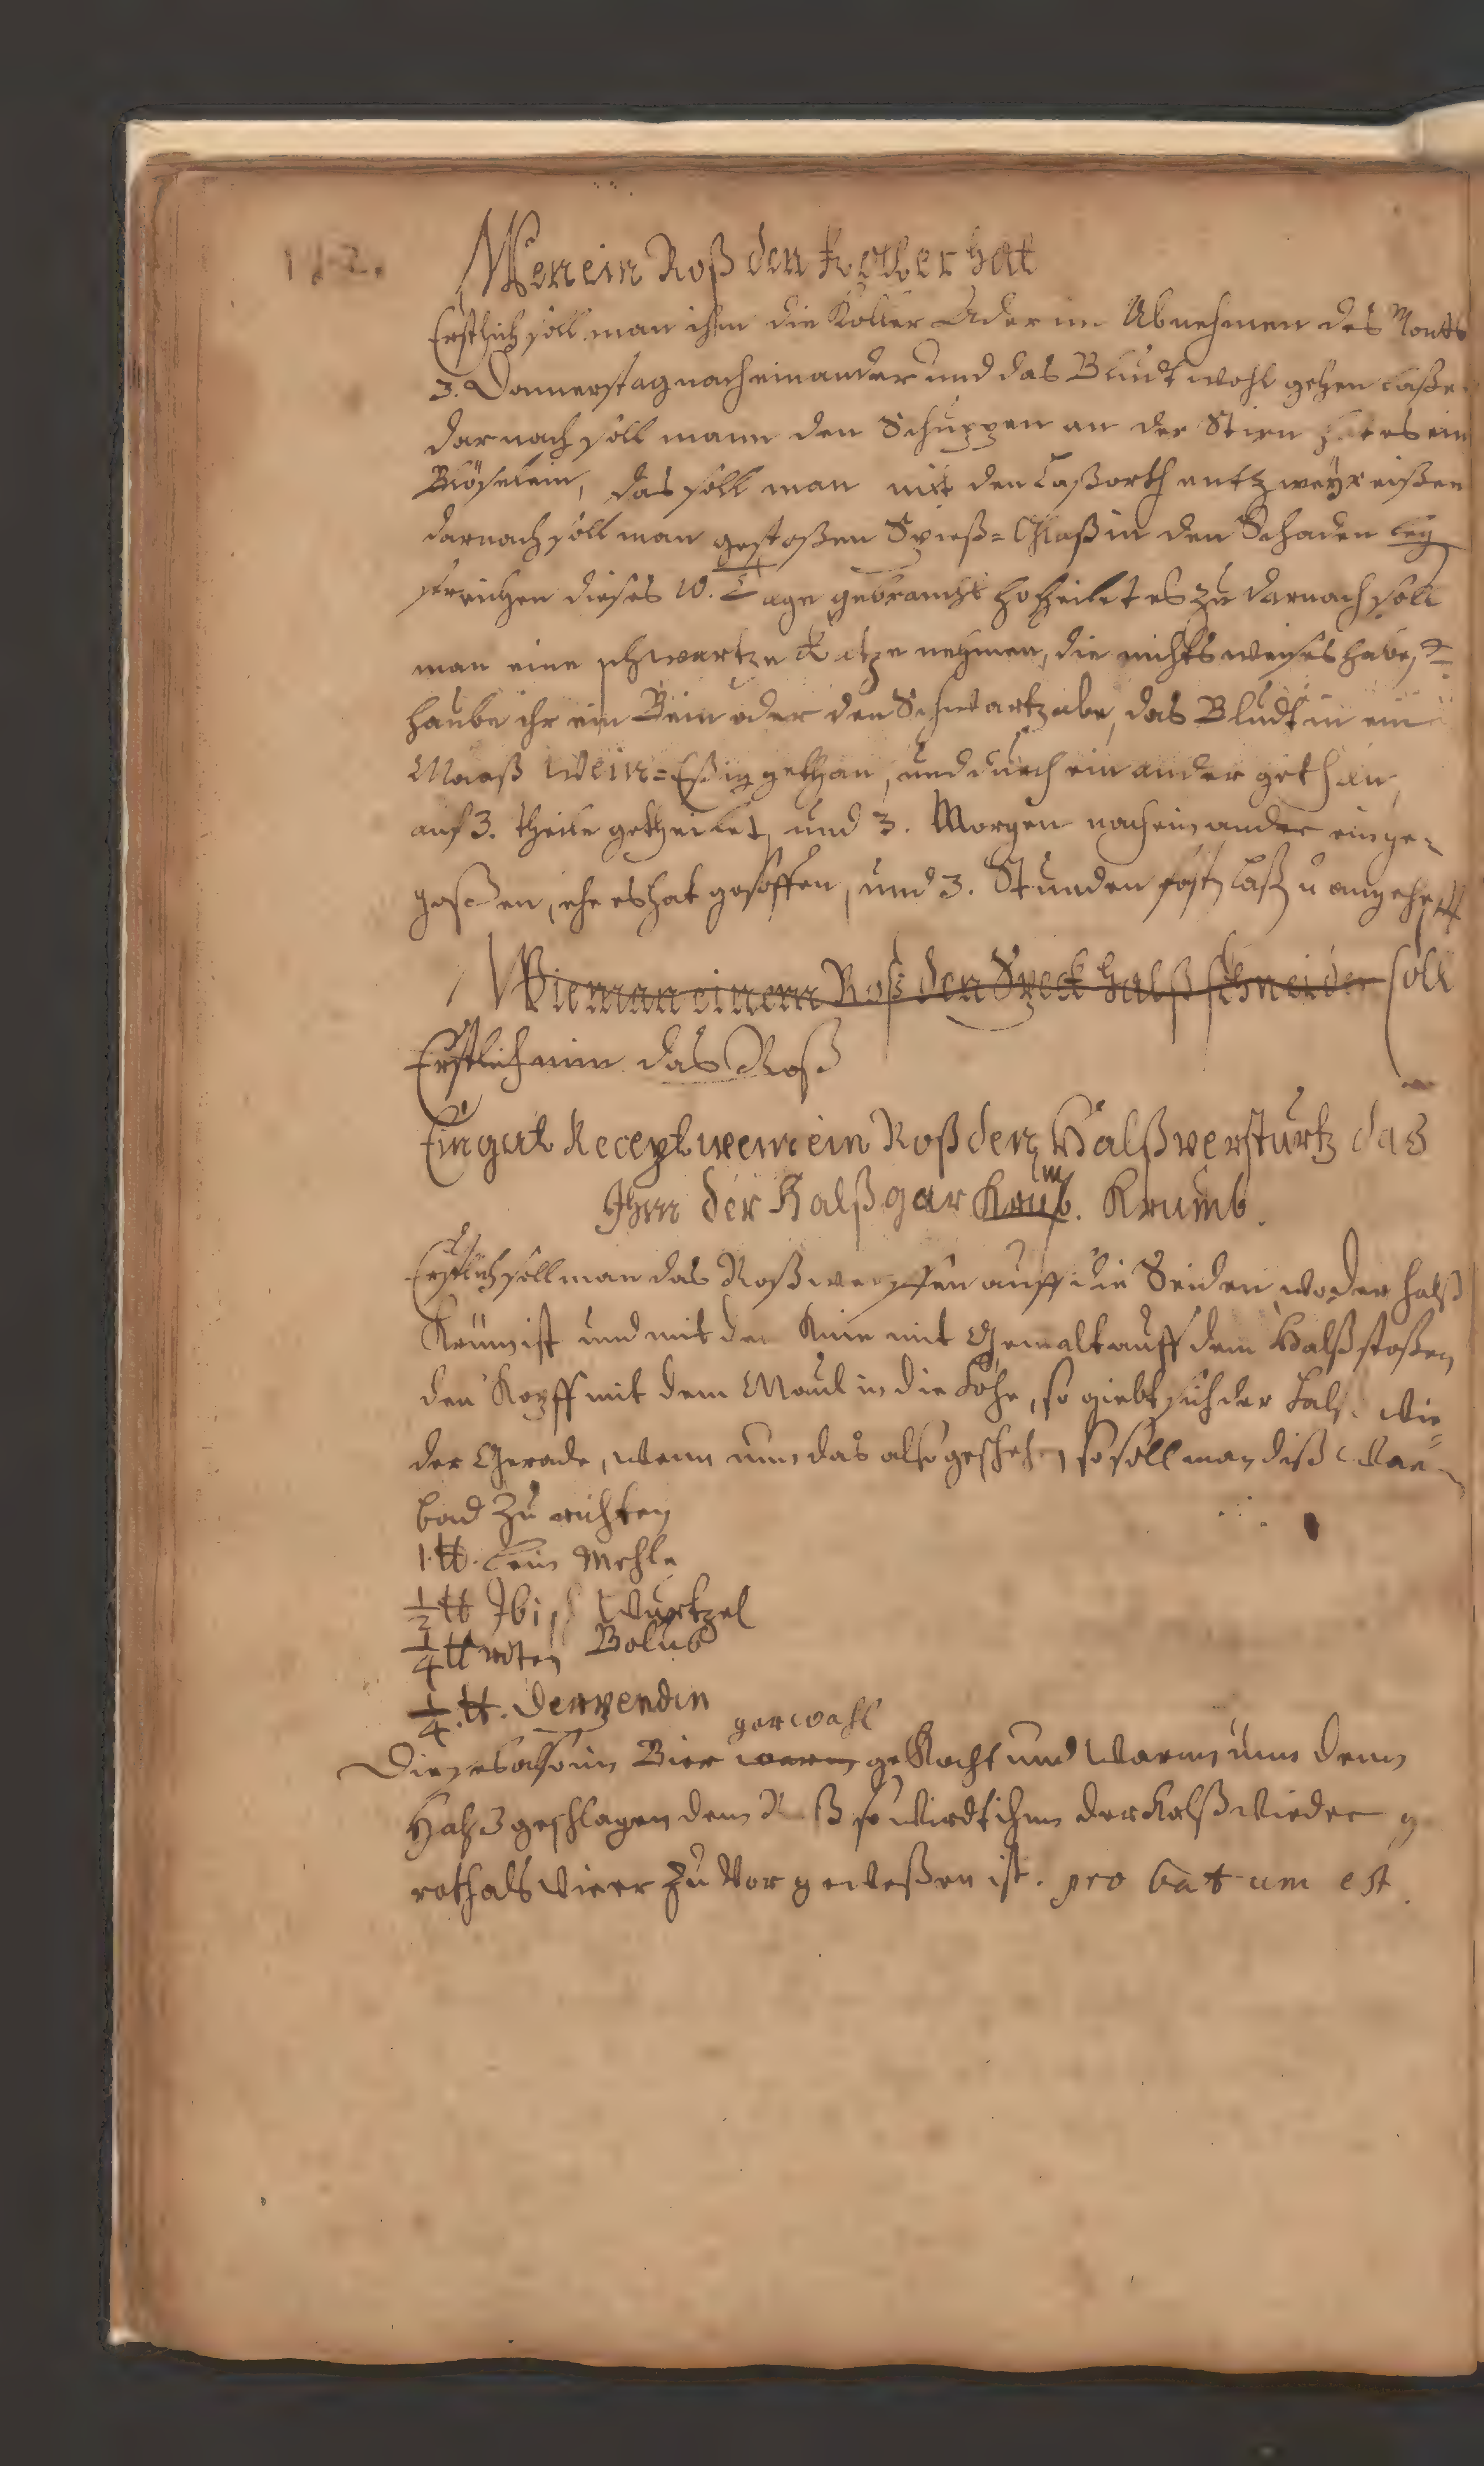 112.
Wen ein Roß den Koller hat
Erstlich soll man ihm die Koller Ader im Abnehmen des Monts
3. Donnerstag nach einander und das Bludt wohl gehen laße
darnach soll mann den Schuppen an der Stirn hat es ein
Bläselein, das soll man mit den Laßorth entzwey reißen
darnach soll man gestoßen Spieß=Glaß in den Schaden leg
streichen dieses 10. Tage gebraucht so heilet es zu darnach soll
man eine schwartze Katze nehmen, die nichts weises habe,
haube ihr ein Bein oder den Schwartz abe, das Bludt in ein
Maaß Wein=Eßig gethan, und durch ein ander gethan,
auf 3. theile getheilet, und 3. Morgen nach einander einge=
goßen, ehe es hat gesoffen, und 3. Stunden fast laß u angeheff
Wie man einem Roß den Speck halß schneiden soll
Erstlich nim das Roß
Ein gut Recept wenn ein Roß den Halß verstürtz das
Ihm der Halß gar Krumb. Krumb.
Erstlich soll man das Roß werffen auff die Seiden wo der halß
Krum ist und mit den Knie mit Gewalt auff dem Halß stoßen
den Kopff mit dem Maul in die Höhe, so giebt sich der Halß wie
der Gerade, wenn nun das also geschehen, so soll man diß
bad zu richten
1. ℔. Lein Mehle
1/2 ℔ Ibisch Wurtzel
1/4 ℔ roten Bolus
1/4. ℔. Derpendin
gar wohl
Dieses also in Bier warm gekocht und warm um dem
Halß geschlagen dem Roß so wirdt ihm der Halß wieder g
rath als wie er zu vor geweßen ist. pro batum est.